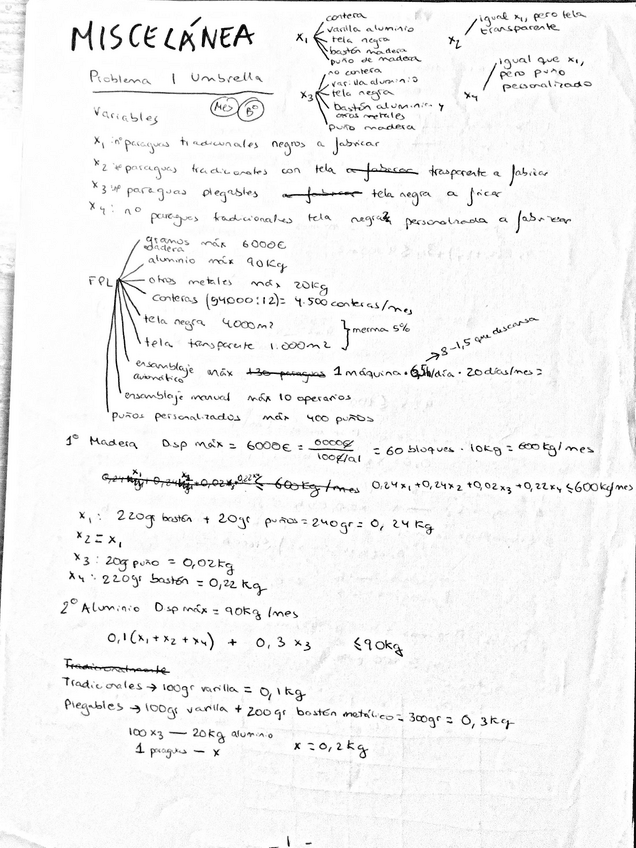 MISCELÁNEA
x₁
contera
varilla aluminio
tela negra
bastón madera
puño de madera
x₂
igual x₁, pero tela
transparente
x₃
no contera
varilla aluminio
tela negra
bastón aluminio y
otros metales
puño madera
x₄
igual que x₁,
pero puño
personalizado
Problema 1 Umbrella
Variables
x₁: nº paraguas tradicionales negros a fabricar
x₂: nº paraguas tradicionales con tela trasparente a fabricar
x₃: nº paraguas plegables tela negra a fricar
x₄: nº paraguas tradicionales tela negra personalizada a fabricar
FPL
madera máx 6000€
aluminio máx 90kg
otros metales máx 20kg
conteras (54000:12)= 4.500 conteras/mes
tela negra 4000m²
tela transparente 1.000m²
merma 5%
ensamblaje automático máx 1 máquina · 6,5h/día · 20 días/mes =
8-1,5 que descansa
ensamblaje manual máx 10 operarios
puños personalizados máx 400 puños
1º Madera Dsp máx = 6000€ = = 60 bloques · 10kg = 600kg/mes
0,24x₁+0,24x₂+0,02x₃+0,22x₄ ≤600kg/mes
x₁: 220gr bastón + 20gr puños = 240gr = 0,24kg
x₂ = x₁
x₃: 20g puño = 0,02kg
x₄: 220gr bastón = 0,22kg
2º Aluminio Dsp máx = 90kg/mes
0,1(x₁+x₂+x₄) + 0,3x₃ ≤90kg
Tradicionalmente
Tradicionales → 100gr varilla = 0,1kg
Plegables → 100gr varilla + 200gr bastón metálico = 300gr = 0,3kg
100x₃ — 20kg aluminio
1 paraguas — x x=0,2kg
- 1 -